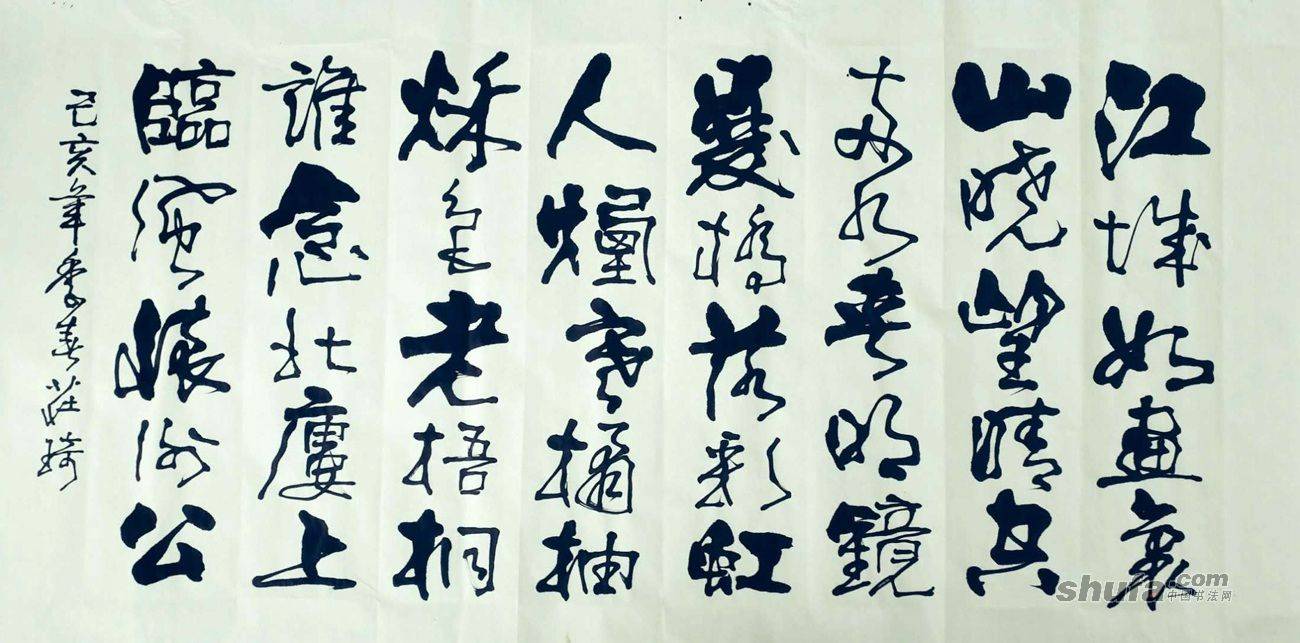 江城如畫裏
山曉望晴空
兩水夾明鏡
雙橋落彩虹
人煙寒橘柚
秋色老梧桐
誰念北樓上
臨風懷謝公
己亥年季春莊琦
shufa.com
中国书法网